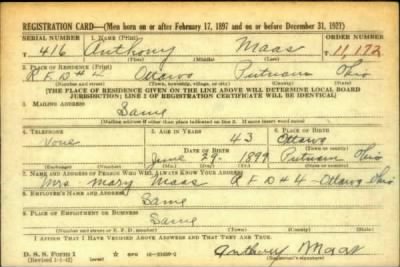 REGISTRATION CARD—(Men born on or after February 17, 1897 and on or before December 31, 1921)
SERIAL NUMBER 1. NAME (Print) ORDER NUMBER
T 416 Anthony Maas 11,172
(First) (Middle) (Last)
2. PLACE OF RESIDENCE (Print)
R F D # 4 Ottawa Putnam Ohio
(Number and street) (Town, township, village, or city) (County) (State)
[THE PLACE OF RESIDENCE GIVEN ON THE LINE ABOVE WILL DETERMINE LOCAL BOARD
JURISDICTION; LINE 2 OF REGISTRATION CERTIFICATE WILL BE IDENTICAL]
3. MAILING ADDRESS
Same
[Mailing address if other than place indicated on line 2. If same insert word same]
4. TELEPHONE 5. AGE IN YEARS 6. PLACE OF BIRTH
None 43 Ottawa
DATE OF BIRTH (Town or county)
June 29 - 1899 Putnam Ohio
(Exchange) (Number) (Mo.) (Day) (Yr.) (State or country)
7. NAME AND ADDRESS OF PERSON WHO WILL ALWAYS KNOW YOUR ADDRESS
Mrs Mary Maas R F D # 4 Ottawa Ohio
8. EMPLOYER'S NAME AND ADDRESS
Same
9. PLACE OF EMPLOYMENT OR BUSINESS
Same
(Number and street or R. F. D. number) (Town) (County) (State)
I AFFIRM THAT I HAVE VERIFIED ABOVE ANSWERS AND THAT THEY ARE TRUE.
D. S. S. Form 1
(Revised 1-1-42) (over) Anthony Maas
(Registrant's signature)